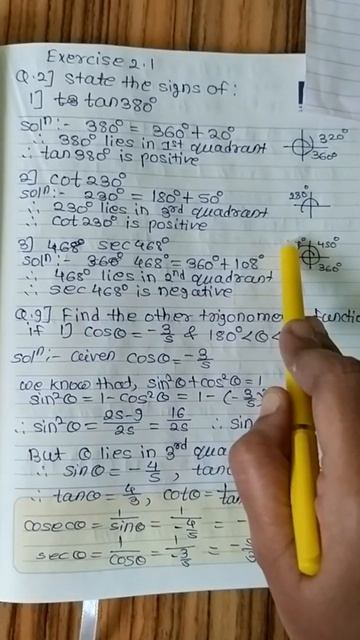 Exercise 2.1
Q.2] State the signs of :
1] tan380°
soln:- 380° = 360° + 20°
∴ 380° lies in 1st quadrant
∴ tan380° is positive
320°
360°
2] cot230°
soln:- 230° = 180° + 50°
∴ 230° lies in 3rd quadrant
∴ cot230° is positive
230°
3] 468° sec468°
soln:- 360° 468° = 360° + 108°
∴ 468° lies in 2nd quadrant
∴ sec468° is negative
450°
360°
Q.9] Find the other trigonome functio
if 1] cosθ = -3/5 & 180° < θ <
soln:- Given cosθ = -3/5
we know that, sin²θ + cos²θ = 1
sin²θ = 1 - cos²θ = 1 - (-3/5)²
∴ sin²θ = 25-9/25 = 16/25 ∴ sin
But θ lies in 3rd qua
∴ sinθ = -4/5, tan
∴ tanθ = 4/3, cotθ = 1/tan
cosecθ = 1/sinθ = 1/-4/5 = -
secθ = 1/cosθ = 1/-3/5 = -5/3